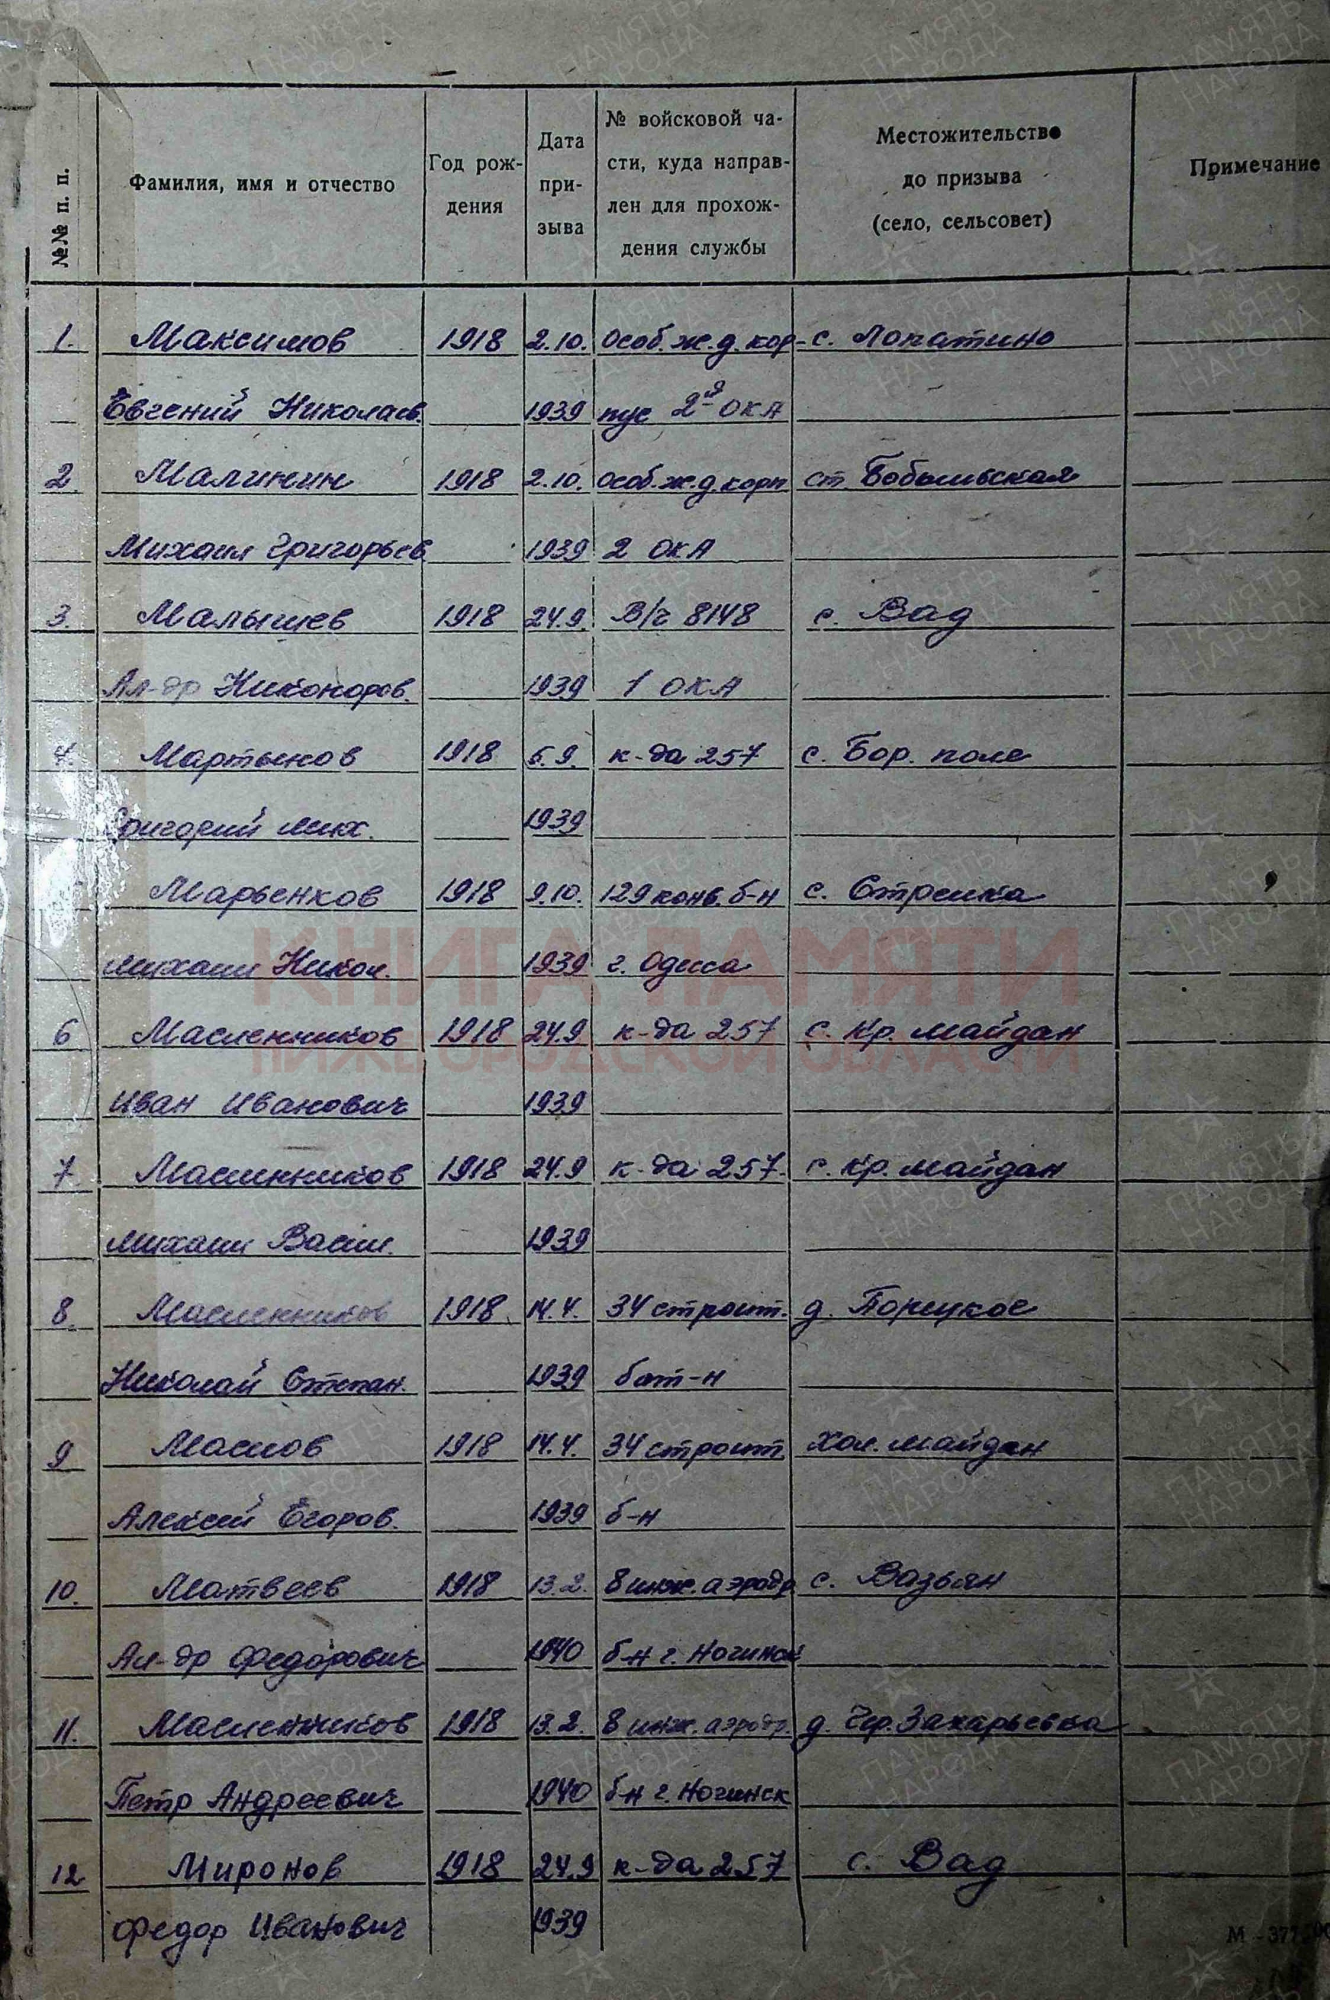 №№ п. п. Фамилия, имя и отчество Год рож-дения Дата при-зыва № войсковой ча-сти, куда направ-лен для прохож-дения службы Местожительство до призыва (село, сельсовет) Примечание
1. Максимов 1918 2.10. Особ. ж.д. кор- с. Лопатино
Евгений Николаев. 1939 пус 2й ОКА
2. Малинин 1918 2.10. особ. ж.д. корп ст. Бобыльская
Михаил Григорьев. 1939 2 ОКА
3. Малышев 1918 24.9. В/ч 8148 с. Вад
Ал-др Никоноров. 1939 1 ОКА
4. Мартынов 1918 6.9. к-да 257 с. Бор. поле
Григорий Мих. 1939
Марьенков 1918 9.10. 129 конв. б-н с. Стрелка
Михаил Никол. 1939 г. Одесса
6 Масленников 1918 24.9 к-да 257 с. Кр. Майдан
Иван Иванович 1939
7. Масленников 1918 24.9 к-да 257. с. Кр. Майдан
Михаил Васил. 1939
8. Масленников 1918 14.4. 34 строит. д. Порецкое
Николай Степан. 1939 бат-н
9 Маслов 1918 14.4. 34 строит. Хол. Майдан
Алексей Егоров. 1939 б-н
10. Матвеев 1918 13.2. 8 инж. аэродр с. Вазьян
Ал-др Федорович 1940 б-н г. Ногинск
11. Масленников 1918 13.2. 8 инж. аэродр. д. Чер. Захарьевка
Петр Андреевич 1940 б-н г. Ногинск
12 Миронов 1918 24.9 к-да 257 с. Вад
Федор Иванович 1939
КНИГА ПАМЯТИ
НИЖЕГОРОДСКОЙ ОБЛАСТИ
ПАМЯТЬ
НАРОДА